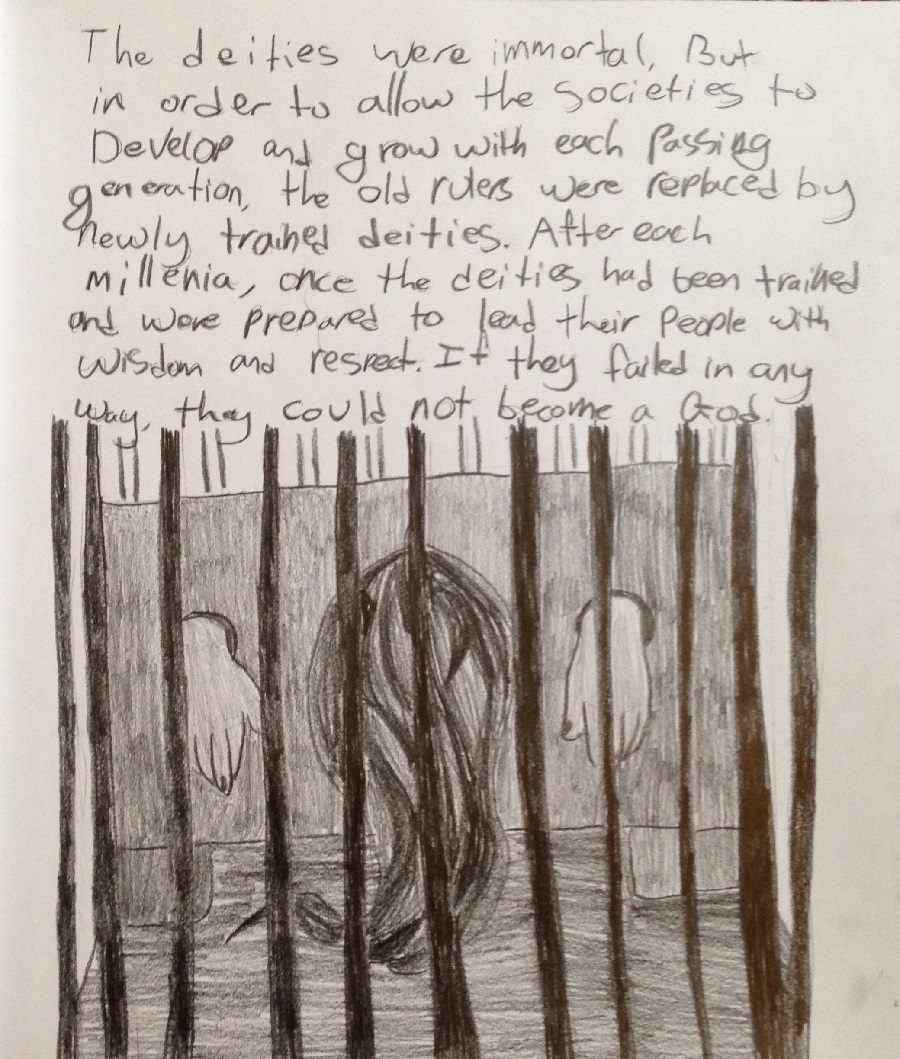 The deities were immortal, But
in order to allow the societies to
Develop and grow with each Passing
generation, the old rulers were replaced by
newly trained deities. After each
millenia, once the deities had been trained
and were prepared to lead their People with
wisdom and respect. If they failed in any
way, they could not become a God.